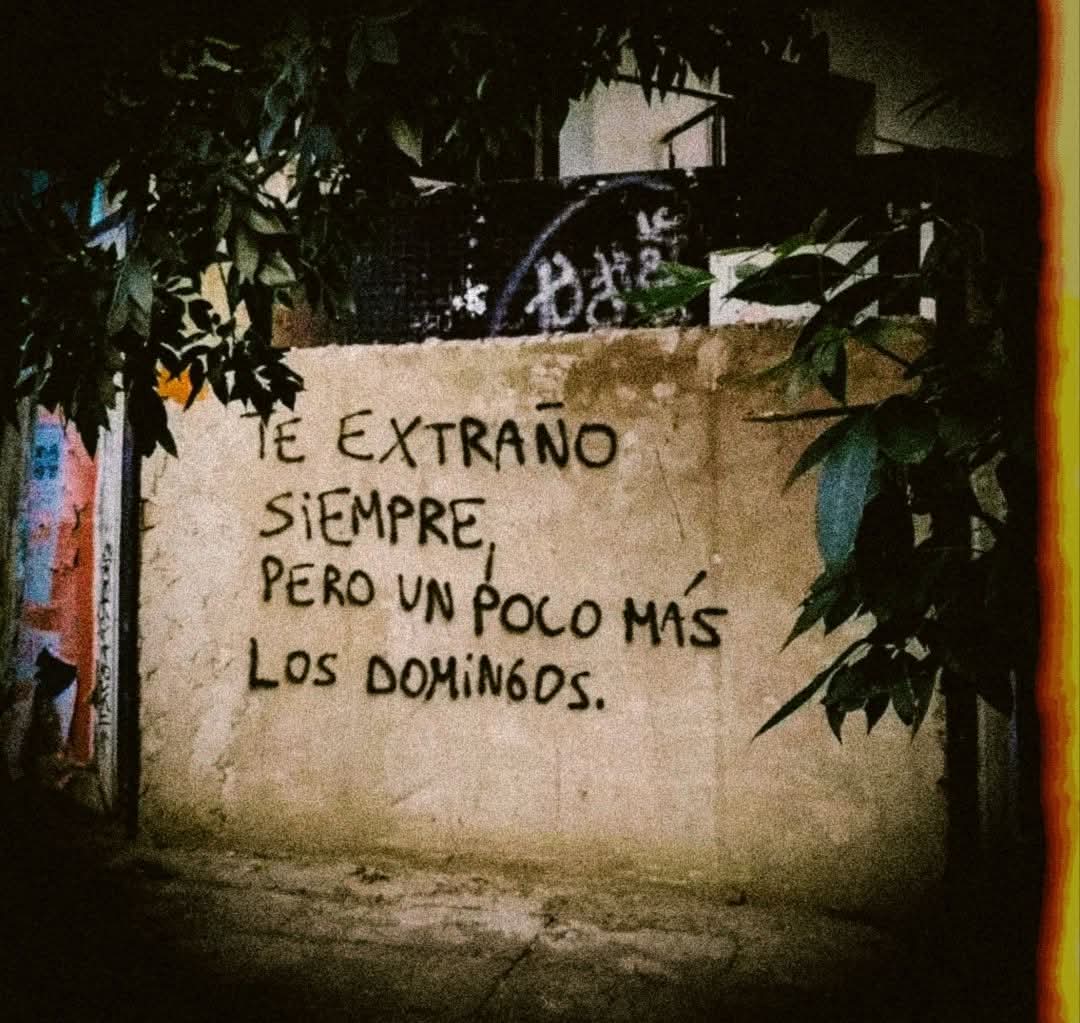 TE EXTRAÑO
SiEMPRE,
PERO UN POCO MÁS
LOS DOMiNGOS.